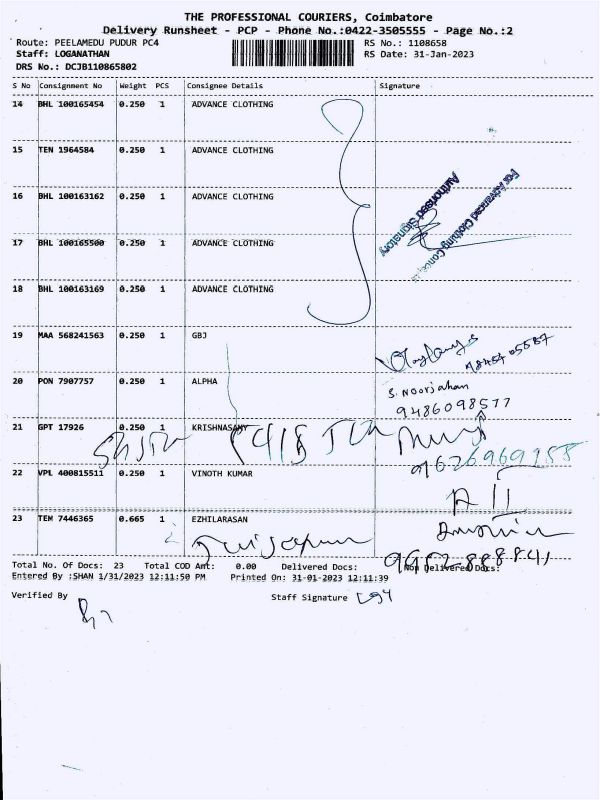 THE PROFESSIONAL COURIERS, Coimbatore
Delivery Runsheet - PCP - Phone No.:0422-3505555 - Page No.:2
Route: PEELAMEDU PUDUR PC4 RS No.: 1108658
Staff: LOGANATHAN RS Date: 31-Jan-2023
DRS No.: DCJB110865802
S No Consignment No Weight PCS Consignee Details Signature
14 BHL 100165454 0.250 1 ADVANCE CLOTHING
15 TEN 1964584 0.250 1 ADVANCE CLOTHING
16 BHL 100163162 0.250 1 ADVANCE CLOTHING
For Advanced Clothing
Authorised Signatory
17 BHL 100165500 0.250 1 ADVANCE CLOTHING
18 BHL 100163169 0.250 1 ADVANCE CLOTHING
19 MAA 568241563 0.250 1 GBJ
20 PON 7907757 0.250 1 ALPHA S. Noorjahan
9486098577
21 GPT 17926 0.250 1 KRISHNASAMY
22 VPL 400815511 0.250 1 VINOTH KUMAR
23 TEM 7446365 0.665 1 EZHILARASAN
Total No. Of Docs: 23 Total COD Amt: 0.00 Delivered Docs: Non Delivered Docs:
Entered By :SHAN 1/31/2023 12:11:50 PM Printed On: 31-01-2023 12:11:39
Verified By Staff Signature